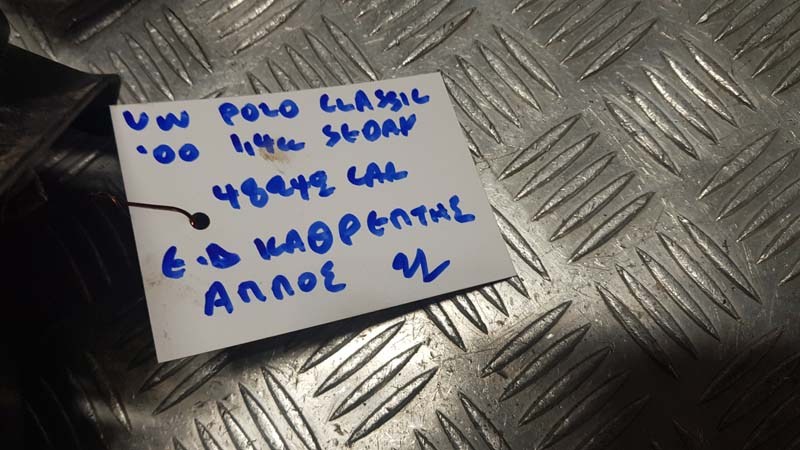 VW POLO CLASSIC
'00 1,4cc SEDAN
48242 CAR
Ε.Δ ΚΑΘΡΕΠΤΗΣ
ΑΠΛΟΣ